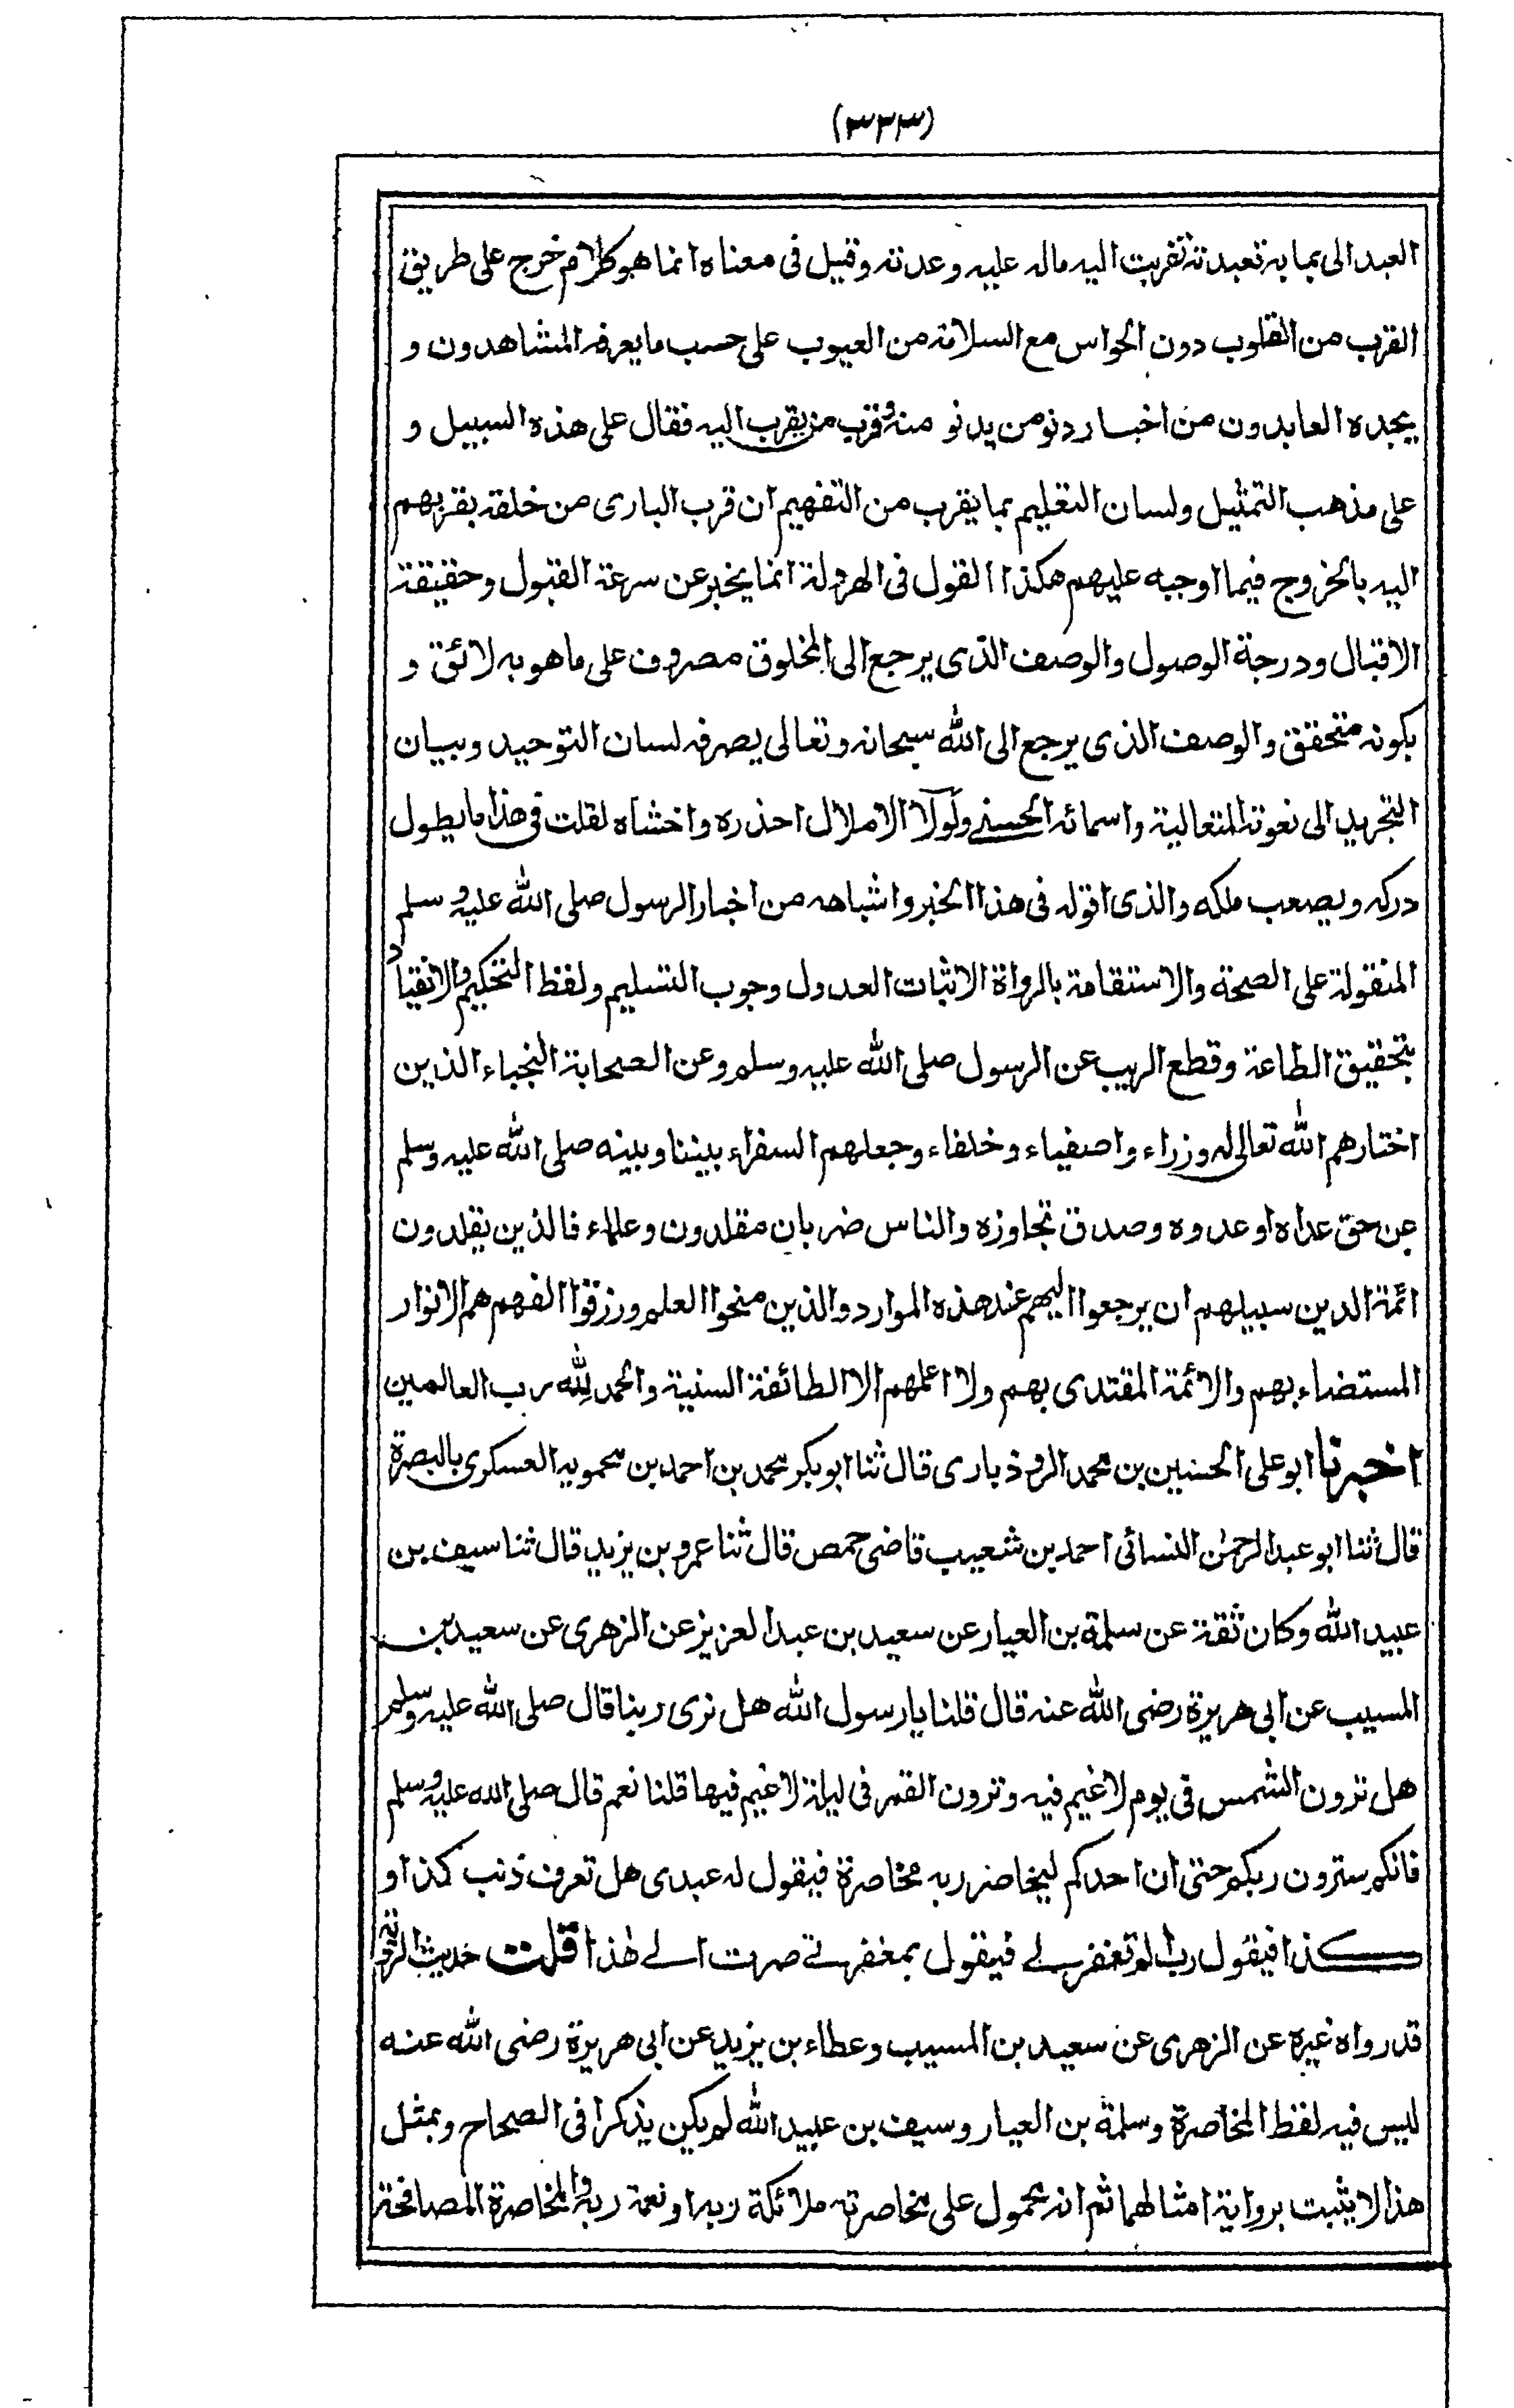 (۳۳۳)
العبد الى بما به تعبدته تقربت اليه ماله عليه وعدته وقيل فى معناه انما هو كلام خرج على طريق
القرب من القلوب دون الحواس مع السلامة من العيوب على حسب ما يعرفه المشاهدون و
يجده العابدون من اخبار دنو من يدنو منه وقرب من يقرب اليه فقال على هذه السبيل و
على مذهب التمثيل ولسان التعليم بما يقرب من التفهيم ان قرب البارى من خلقه بقربهم
اليه بالخروج فيما اوجبه عليهم هكذا القول فى الهرولة انما يخبر عن سرعة القبول وحقيقة
الاقبال ودرجة الوصول والوصف الذى يرجع الى المخلوق مصروف على ما هو به لائق و
بكونه متحقق والوصف الذى يرجع الى الله سبحانه وتعالى يصرفه لسان التوحيد وبيان
التجريد الى نعوته المتعالية واسمائه الحسنى ولولا الاملال احذره واخشاه لقلت فى هذا ما يطول
دركه ويصعب ملكه والذى اقوله فى هذا الخبر واشباهه من اخبار الرسول صلى الله عليه وسلم
المنقولة على الصحة والاستقامة بالرواة الاثبات العدول وجوب التسليم ولفظ التحكيم والانقياد
بتحقيق الطاعة وقطع الريب عن الرسول صلى الله عليه وسلم وعن الصحابة النجباء الذين
اختارهم الله تعالى له وزراء واصفياء وخلفاء وجعلهم السفراء بيننا وبينه صلى الله عليه وسلم
عن حق عداه او عدوه وصدق تجاوزه والناس ضربان مقلدون وعلماء فالذين يقلدون
ائمة الدين سبيلهم ان يرجعوا اليهم عند هذه الموارد والذين منحوا العلم ورزقوا الفهم هم الانوار
المستضاء بهم والائمة المقتدى بهم ولا اعلمهم الا الطائفة السنية والحمد لله رب العالمين
اخبرنا ابو على الحسين بن محمد الروذبارى قال ثنا ابو بكر محمد بن احمد بن محمويه العسكرى بالبصرة
قال ثنا ابو عبد الرحمن النسائى احمد بن شعيب قاضى حمص قال ثنا عمرو بن يزيد قال ثنا سيف بن
عبيد الله وكان ثقة عن سلمة بن العيار عن سعيد بن عبد العزيز عن الزهرى عن سعيد بن
المسيب عن ابى هريرة رضى الله عنه قال قلنا يا رسول الله هل نرى ربنا قال صلى الله عليه وسلم
هل ترون الشمس فى يوم لا غيم فيه وترون القمر فى ليلة لا غيم فيها قلنا نعم قال صلى الله عليه وسلم
فانكم سترون ربكم حتى ان احدكم ليخاضر ربه مخاصرة فيقول له عبدى هل تعرف ذنب كذا او
كذا فيقول رب الم تغفر لى فيقول بمغفرتى صرت الى هذا قلت حديث الرؤية
قد رواه غيره عن الزهرى عن سعيد بن المسيب وعطاء بن يزيد عن ابى هريرة رضى الله عنه
ليس فيه لفظ المخاصرة وسلمة بن العيار وسيف بن عبيد الله لم يكن يذكرا فى الصحاح وبمثل
هذا لا يثبت برواية امثالهما ثم انه محمول على مخاصرته ملائكة ربه او نعمة ربه والمخاصرة المصافحة